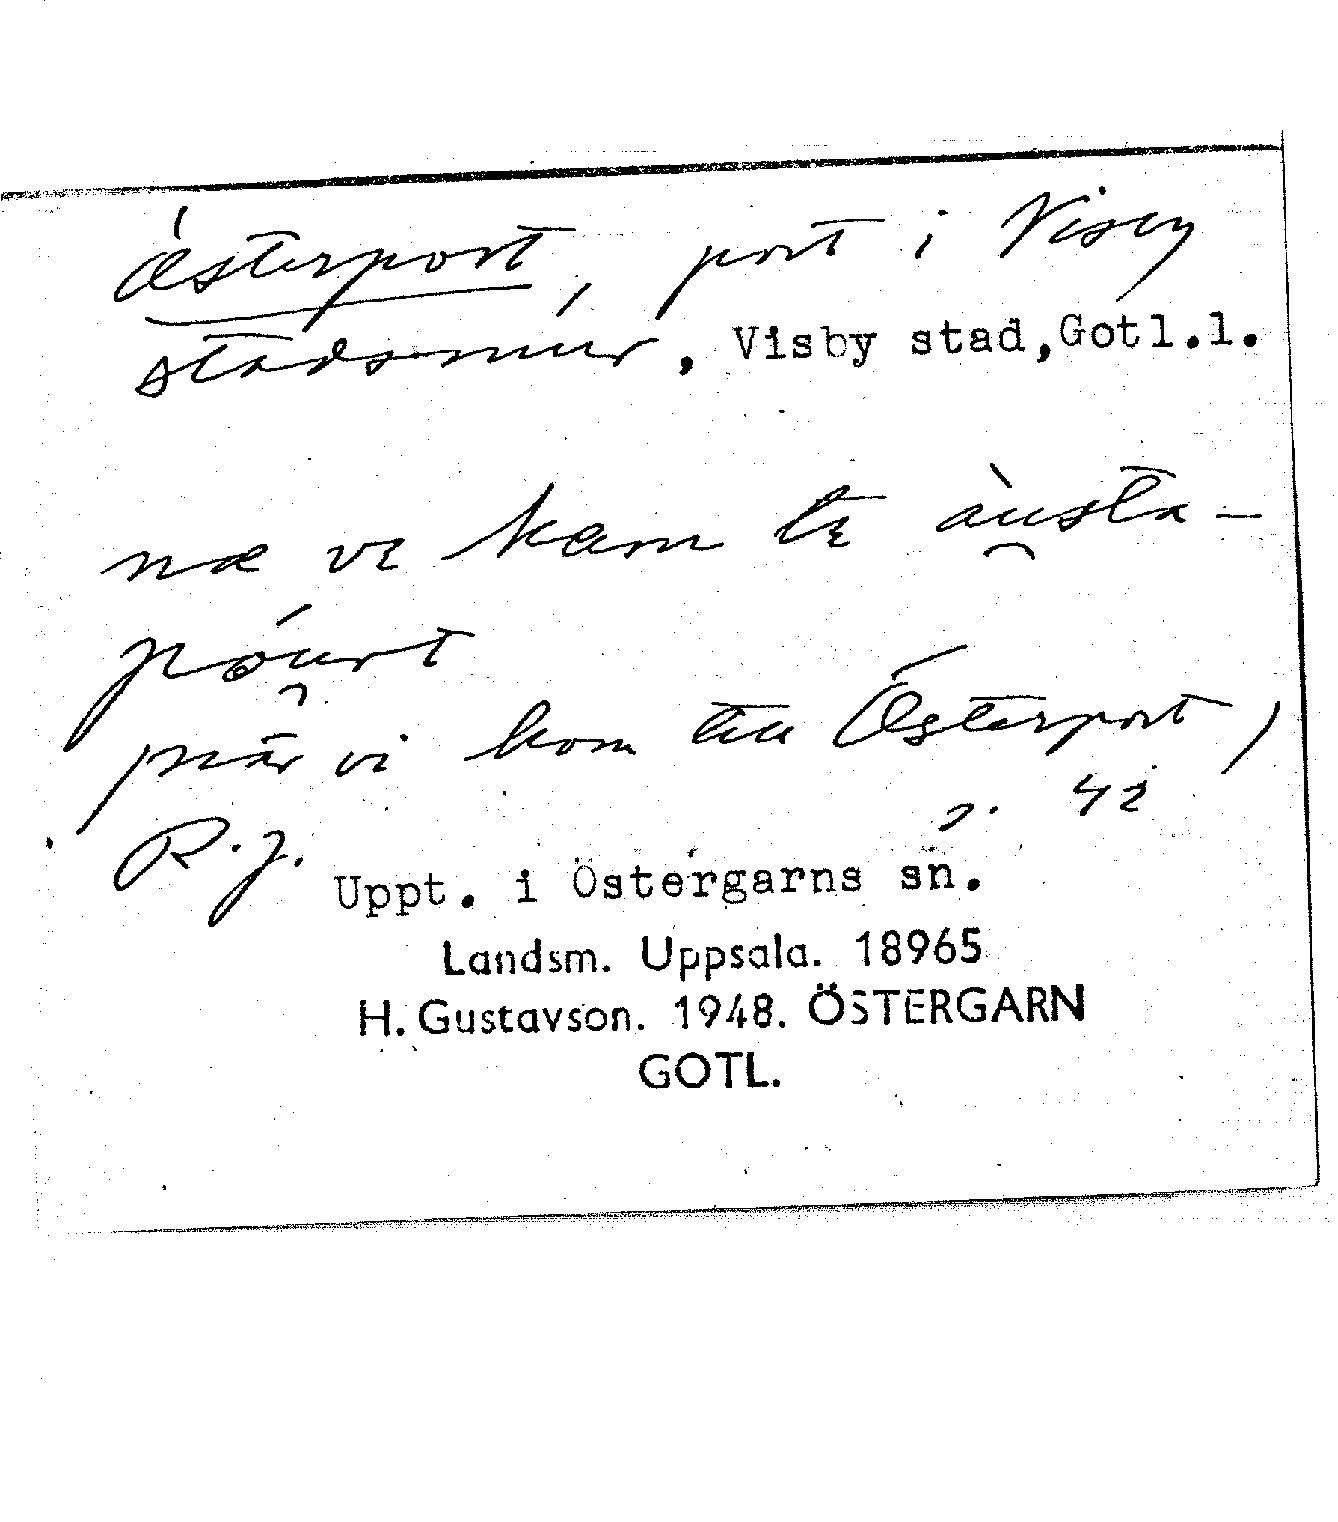 Österport, port i Visby
stadsmur, Visby stad, Gotl.l.
næ vɪ kam tɛ àu̯sta-
pǿu̯rt
/när vi kom till Österport/
s. 42
R.J.
Uppt. i Östergarns sn.
Landsm. Uppsala. 18965
H. Gustavson. 1948. ÖSTERGARN
GOTL.